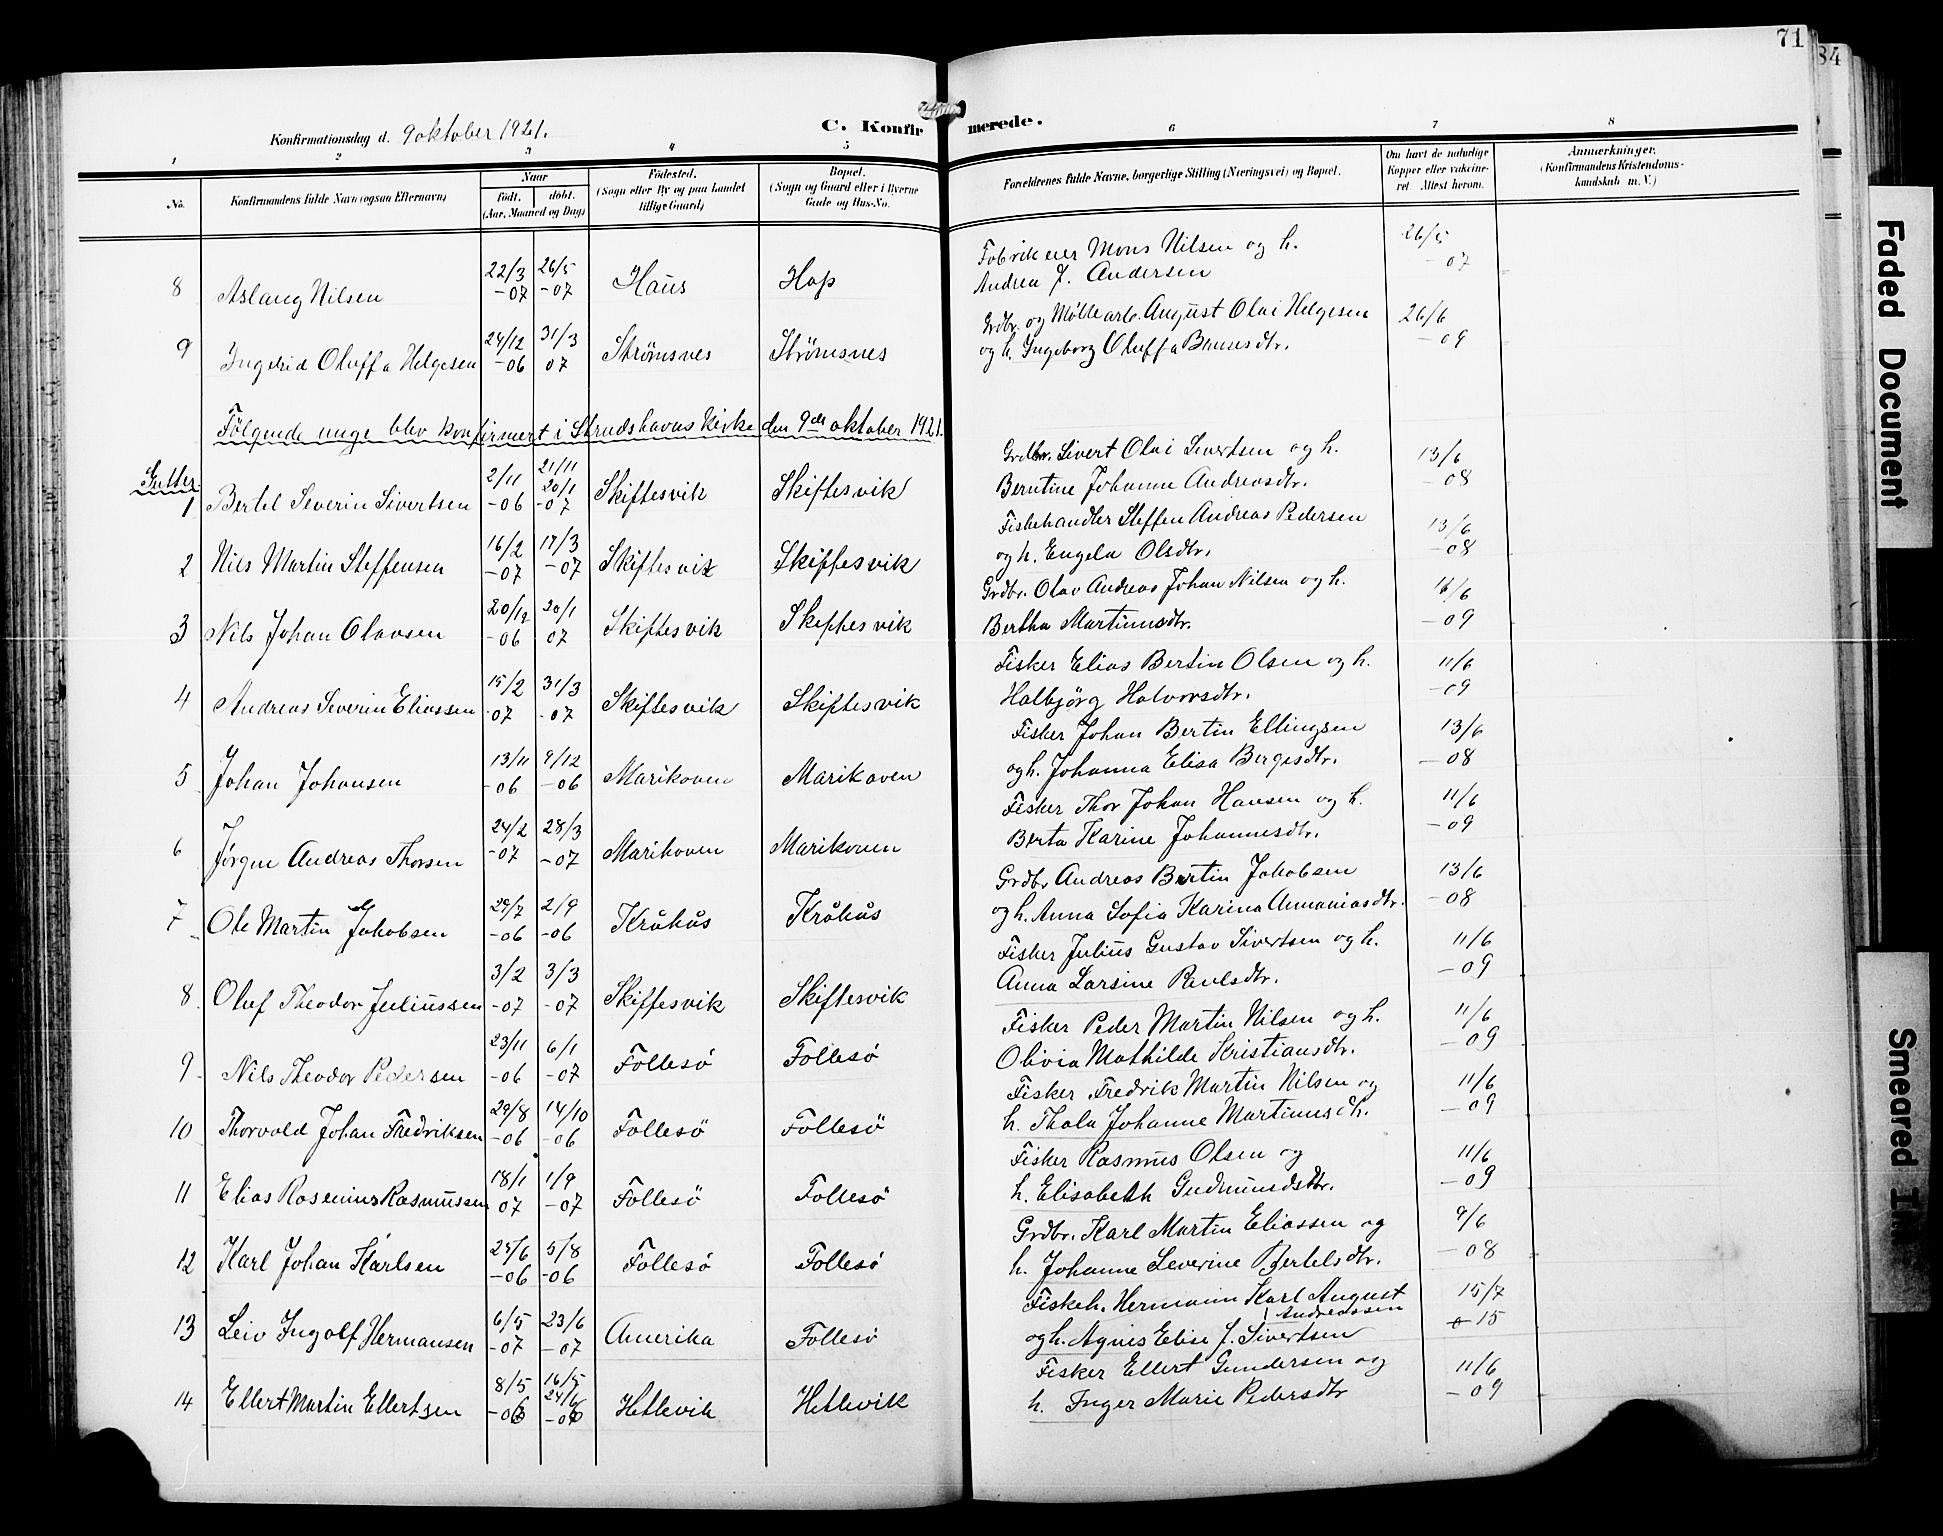 71
84
Konfirmationsdag d. 9 oktober 1921.
C. Konfirmerede.
1 2 3 4 5 6 7 8
No.
Konfirmandens fulde Navn (ogsaa Efternavn)
Naar
født. døbt.
(Aar, Maaned og Dag)
Fødested.
(Sogn eller By og paa Landet
tillige Gaard)
Bopæl.
(Sogn og Gaard eller i Byerne
Gade og Hus-No.
Forældrenes fulde Navne, borgerlige Stilling (Næringsvei) og Bopæl.
Om havt de naturlige
Kopper eller vakcine-
ret Attest herom.
Anmærkninger.
(Konfirmandens Kristendoms-
kundskab m. V.)
8 Aslaug Nilsen 22/3 -07 26/5 -07 Haus Hop
Fabrikeier Mons Nilsen og h.
Andrea J. Andersen
26/5 -07
9 Ingebrid Oluffa Helgesen 24/12 -06 31/3 07 Strømsnes Strømsnes
Grdbr. og Møllearb. August Olai Helgesen
og h. Ingeborg Oluffa Bernesdtr.
26/6 -09
Følgende unge blev konfirmert i Strudshavns Kirke den 9de oktober 1921.
Gutter.
1 Bertel Severin Sivertsen 2/11 -06 21/11 20/1 -07 Skiftesvik Skiftesvik
Grdbr. Sivert Olai Sivertsen og h.
Berntine Johanne Andreasdtr.
13/6 -08
2 Nils Martin Steffensen 16/2 -07 17/3 -07 Skiftesvik Skiftesvik
Fiskehandler Steffen Andreas Pedersen
og h. Engela Olsdtr.
13/6 -08
3 Nils Johan Olavsen 20/12 -06 20/1 07 Skiftesvik Skiftesvik
Grdbr. Olav Andreas Johan Nilsen og h.
Bertha Martinusdtr.
16/6 -09
4 Andreas Severin Eliassen 15/2 -07 31/3 -07 Skiftesvik Skiftesvik
Fisker Elias Bertin Olsen og h.
Halbjörg Halvorsdtr.
11/6 -09
5 Johan Johansen 13/11 -06 9/12 -06 Marikoven Marikoven
Fisker Johan Bertin Ellingsen
og h. Johanna Elisa Børgesdtr.
13/6 -08
6 Jørgen Andreas Thorsen 24/2 -07 28/3 -07 Marikoven Marikoven
Fisker Thor Johan Hansen og h.
Berta Karine Johannesdtr.
11/6 -09
7 Ole Martin Jakobsen 29/7 -06 2/9 -06 Kråkås Kråkås
Grdbr Andreas Bertin Jakobsen
og h. Anna Sofia Karina Annaniasdtr.
13/6 -08
8 Oluf Theodor Juliussen 3/2 -07 3/3 -07 Skiftesvik Skiftesvik
Fisker Julius Gustav Sivertsen og h.
Anna Larsine Paulsdtr.
11/6 -09
9 Nils Theodor Pedersen 23/11 -06 6/1 -07 Follesö Follesö
Fisker Peder Martin Nilsen og h.
Olivia Mathilde Kristiansdtr.
11/6 -09
10 Thorvald Johan Fredriksen 29/8 -06 14/10 -06 Follesö Follesö
Fisker Fredrik Martin Nilsen og
h. Thala Johanne Martinusdtr.
11/6 -09
11 Elias Rosenius Rasmussen 18/1 07 1/9 -07 Follesö Follesö
Fisker Rasmus Olsen og
h. Elisabeth Gudmundsdtr.
11/6 -09
12 Karl Johan Karlsen 24/6 -06 5/8 -06 Follesö Follesö
Grdbr. Karl Martin Eliassen og
h. Johanne Severine Bertelsdtr.
9/6 -08
13 Leiv Ingolf Hermansen 6/5 -07 23/6 -07 Amerika Follesö
Fiskeh. Hermann Karl August
Andreassen
og h. Agnes Elise J. Sivertsen
15/7 -15
14 Ellert Martin Ellertsen 8/5 -06 16/5 24/6 -06 Hetlevik Hetlevik
Fisker Ellert Gundersen og
h. Inger Marie Pedersdtr
11/6 -09
Faded Document
Smeared Ink